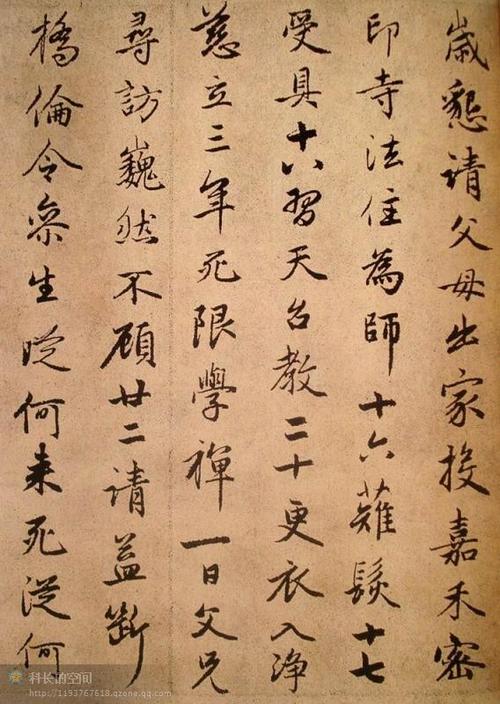 歳懇请父母出家投嘉禾密
印寺法住為師十六薙髮十七
受具十八習天台教二十更衣入净
慈立三年死限學禪一日父兄
尋訪巍然不顧廿二请益斷
橋倫令枀生從何来死從何
科长的空间
http://1193767618.qzone.qq.com